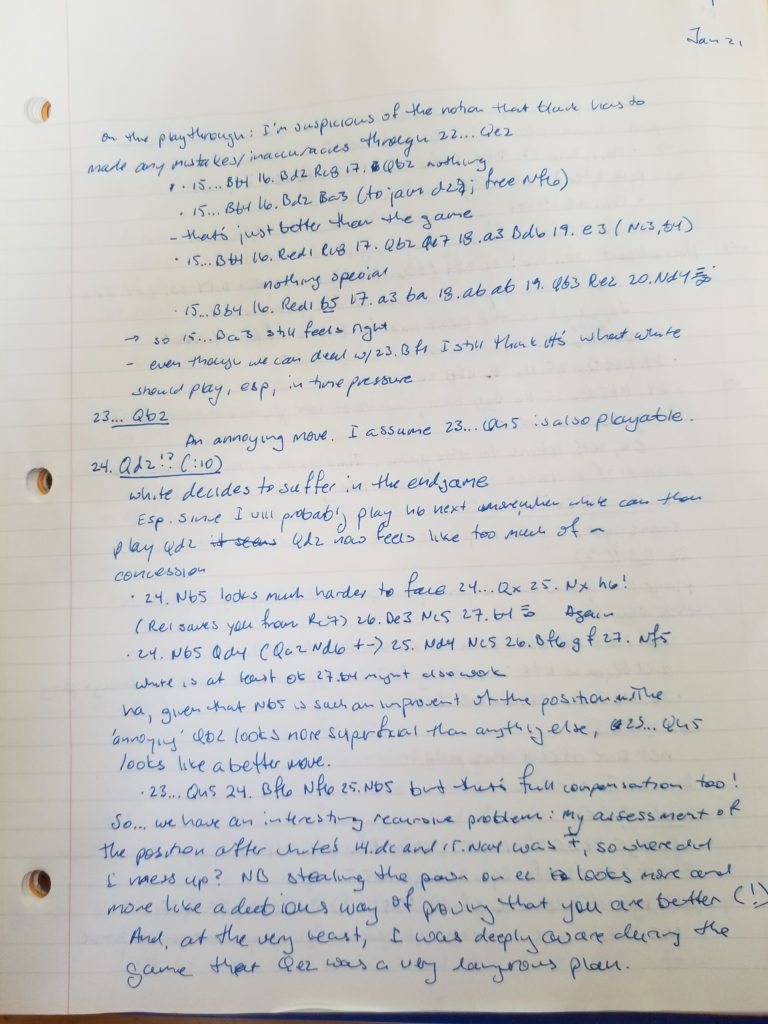 Jan 21
on the playthrough: I'm suspicious of the notion that black has to
made any mistakes/inaccuracies through 22... Qe2
· 15... Bb4 16. Bd2 Rc8 17. Qb2 nothing
· 15... Bb4 16. Bd2 Ba3 (to jam d2; free Nf6)
- that's just better than the game
· 15... Bb4 16. Red1 Rc8 17. Qb2 Qe7 18. a3 Bd6 19. e3 (Nc3, b4)
nothing special
· 15... Bb4 16. Red1 b5 17. a3 ba 18. ab ab 19. Qb3 Re2 20. Nd4
→ so 15... Ba3 still feels right
- even though we can deal w/ 23. Bf1 I still think it's what white
should play, esp, in time pressure
23... Qb2
An annoying move. I assume 23... Qh5 is also playable.
24. Qd2!? (:10)
white decides to suffer in the endgame
Esp. since I will probably play h6 next when white can then
play Qd2 it seems Qd2 now feels like too much of a
concession
· 24. Nb5 looks much harder to face 24... Qx 25. Nx h6!
(Re1 saves you from Rc7) 26. De3 Nc5 27. b4 = Again
· 24. Nb5 Qd4 (Qa2 Nd6 +-) 25. Nd4 Nc5 26. Bf6 gf 27. Nf5
white is at least ok 27. b4 might also work
ha, given that Nb5 is such an improvent of the position the
'annoying' Qb2 looks more superficial than anything else, 23... Qh5
looks like a better move.
· 23... Qh5 24. Bf6 Nf6 25. Nb5 but that's full compensation too!
So... we have an interesting recursive problem: my assessment of
the position after white's 14. dc and 15. Nd4 was ∓, so where did
I mess up? NB stealing the pawn on e2 looks more and
more like a dubious way of proving that you are better (!)
And, at the very least, I was deeply aware during the
game that Qe2 was a very dangerous plan.